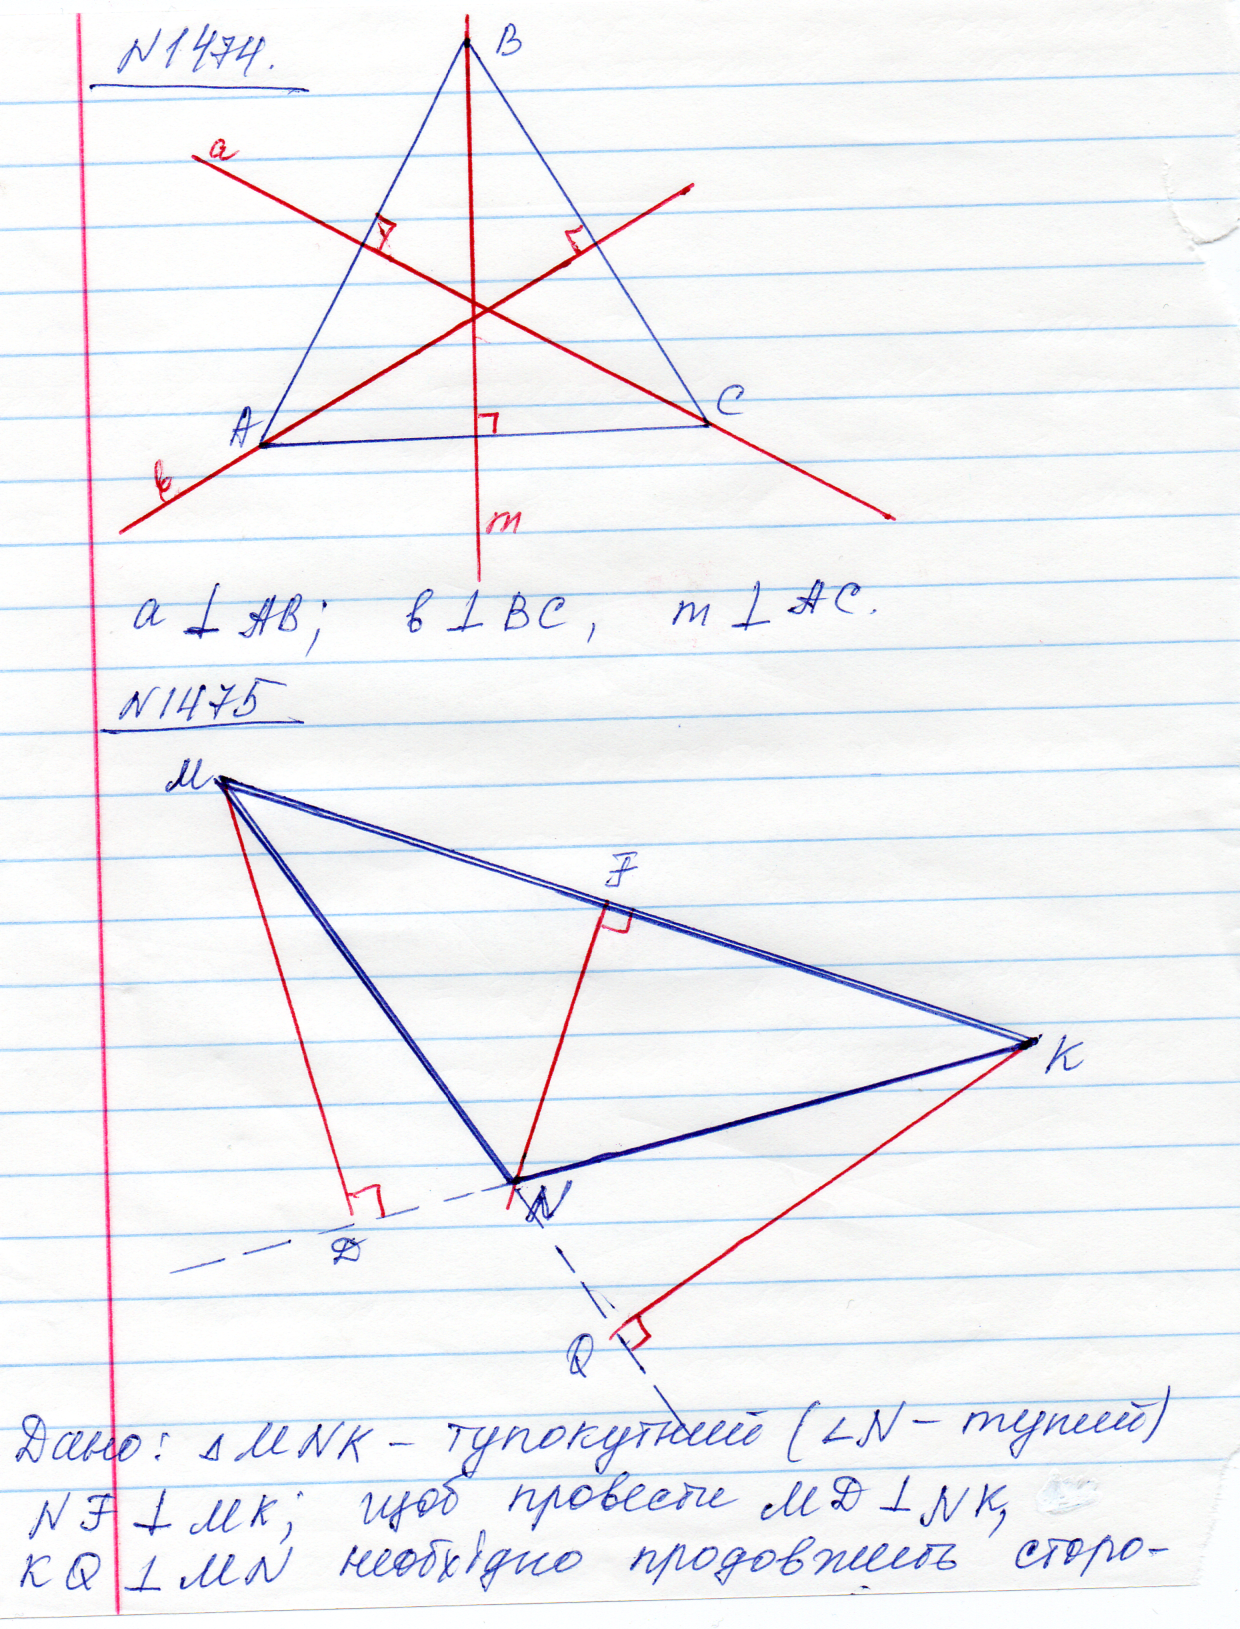 N1474.
B
a
A
C
b
m
a ⊥ AB; в ⊥ BC, m ⊥ AC.
N1475
M
F
K
N
D
Q
Дано: △ MNK – тупокутний (∠N – тупий)
NF ⊥ MK; щоб провести MD ⊥ NK,
KQ ⊥ MN необхідно продовжить сторо-